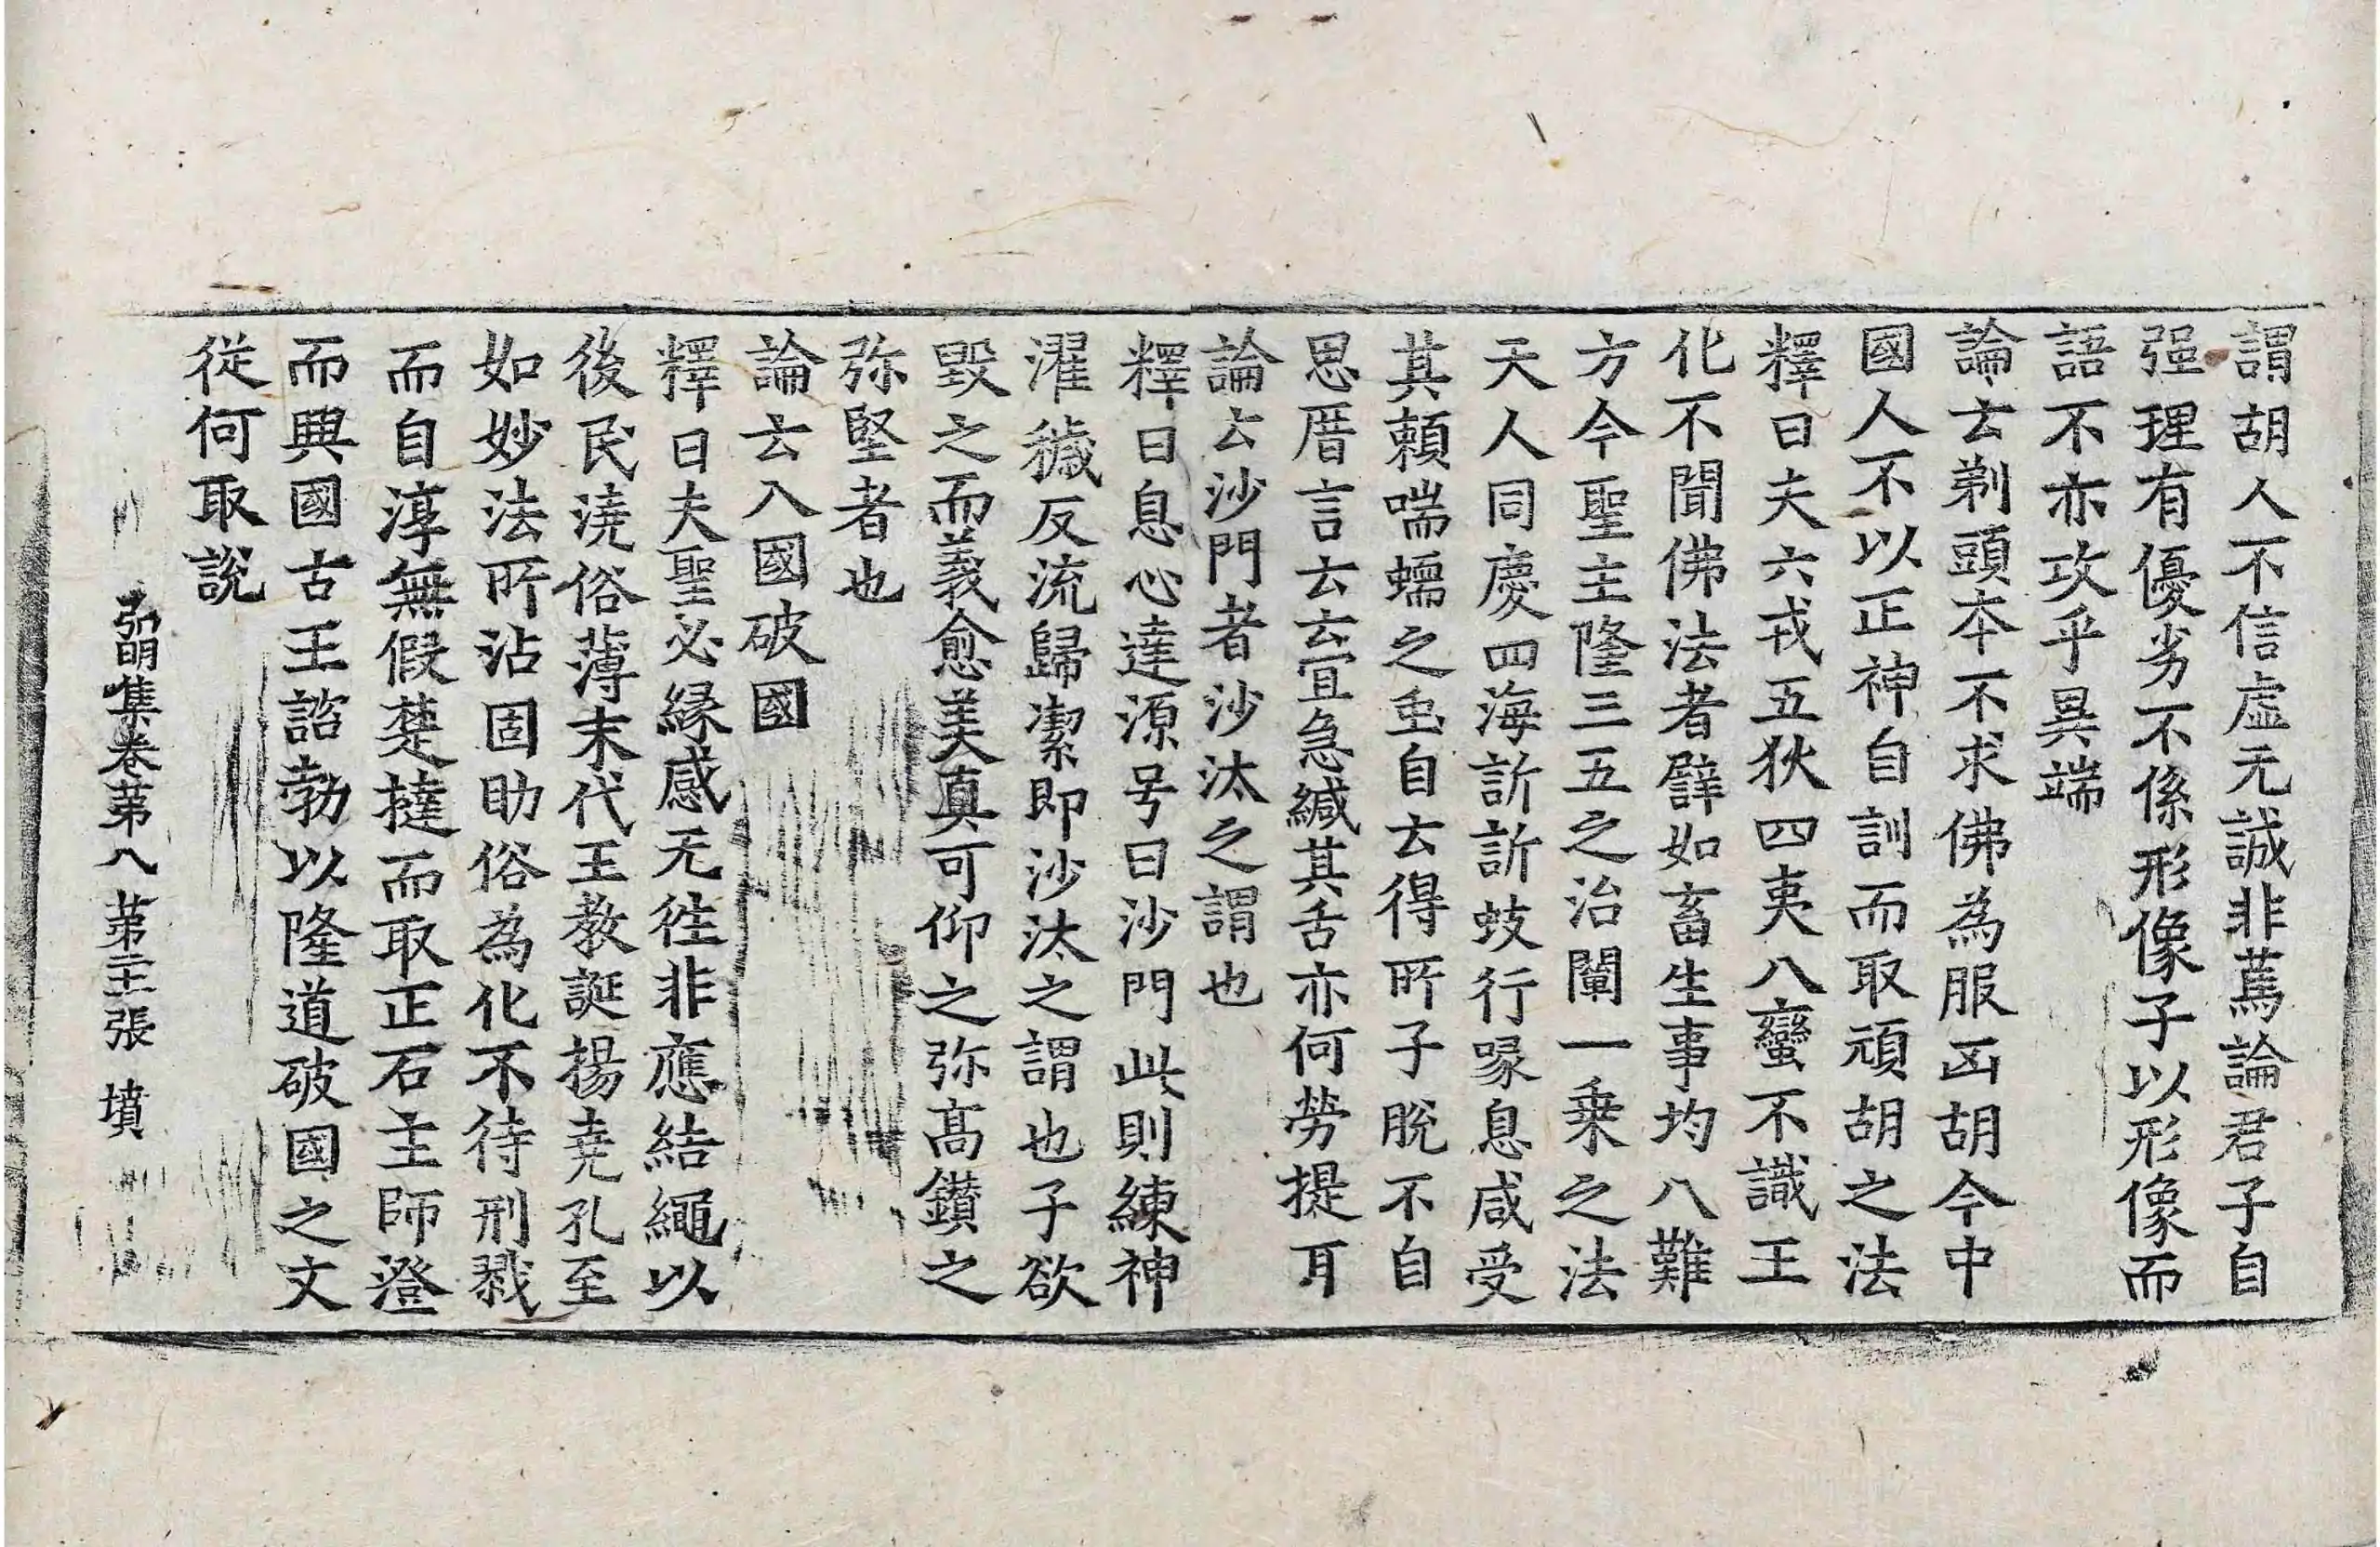 謂胡人不信虛无誠非蔿論君子自
强理有優劣不係形像子以形像而
語不亦攻乎異端
論云剃頭本不求佛為服凶胡今中
國人不以正神自訓而取頑胡之法
釋曰夫六戎五狄四夷八蠻不識王
化不聞佛法者譬如畜生事均八難
方今聖主隆三五之治闡一乗之法
天人同慶四海訢訢蚑行喙息咸受
其頼喘蠕之虫自云得所子脫不自
思厝言云云宜急緘其舌亦何勞提耳
論云沙門者沙汰之謂也
釋曰息心達源号曰沙門此則練神
濯穢反流歸潔即沙汰之謂也子欲
毀之而義愈美真可仰之弥髙鑚之
弥堅者也
論云入國破國
釋曰夫聖必緣感无徃非應結繩以
後民澆俗薄末代王教誕揚尭孔至
如妙法所沾固助俗為化不待刑戮
而自淳無假楚撻而取正石主師澄
而興國古王諮勃以隆道破國之文
従何取說
弘明集卷第八　第二十張　墳